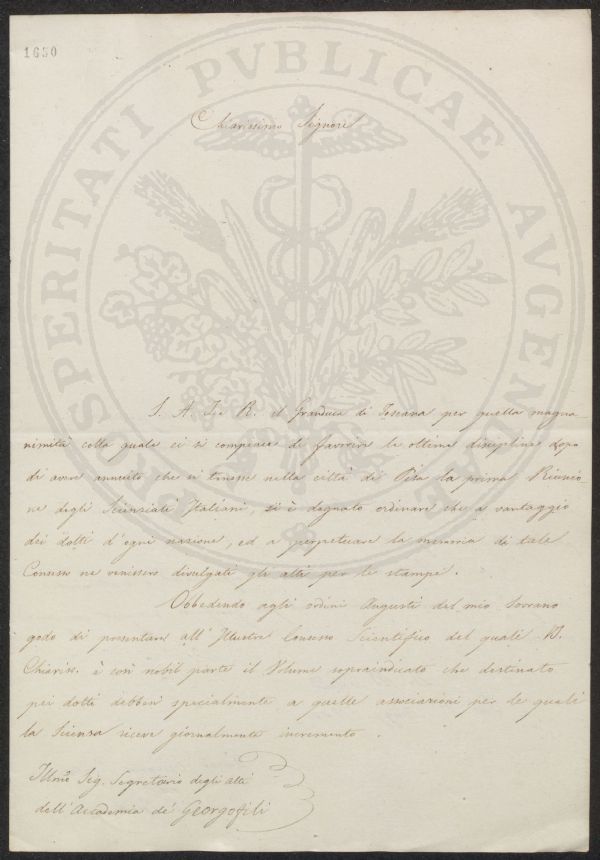 1650
PROSPERITATI PVBLICAE AVGENDAE
Chiarissimo Signore
S. A. I. e R. il Granduca di Toscana per quella magna
nimità colla quale ei si compiace di favorire le ottime discipline dopo
di avere annuito che si tenesse nella città di Pisa la prima Riunio-
ne degli Scienziati Italiani, si è degnato ordinare che a vantaggio
dei dotti d'ogni nazione, ed a perpetuare la memoria di tale
Consesso ne venissero divulgati gli atti per le stampe.
Obbedendo agli ordini Augusti del mio Sovrano
godo di presentare all'Illustre Consesso Scientifico del quale V.
Chiariss. è così nobil parte il Volume sopraindicato che destinato
pei dotti debbesi specialmente a quelle associazioni per le quali
la Scienza riceve giornalmente incremento.
Illmo Sig. Segretario degli atti
dell'Accademia de' Georgofili